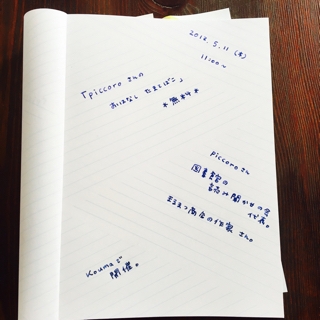 2018.5.11(金)
11:00〜
「piccoro さんの
おはなし たまてばこ」
*無料*
piccoroさん
図書館の
読み聞かせの会
代表。
商店の作家 さん。
Koumaで
開催。